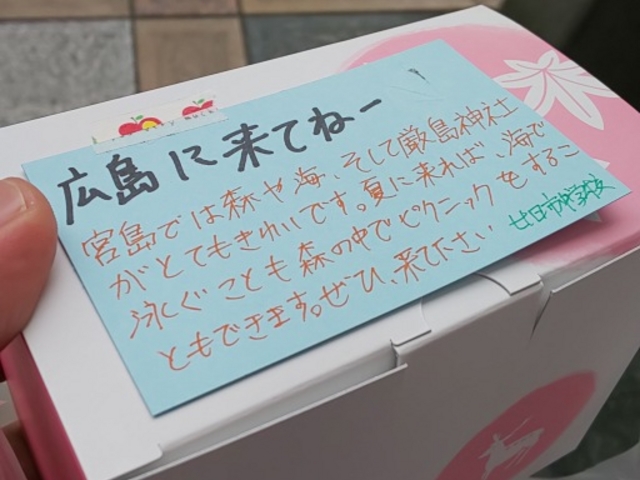 広島に来てねー
宮島では森や海、そして厳島神社
がとてもきれいです。夏に来れば、海で
泳ぐことも森の中でピクニックをするこ
ともできます。ぜひ、来て下さい
廿日市中学校